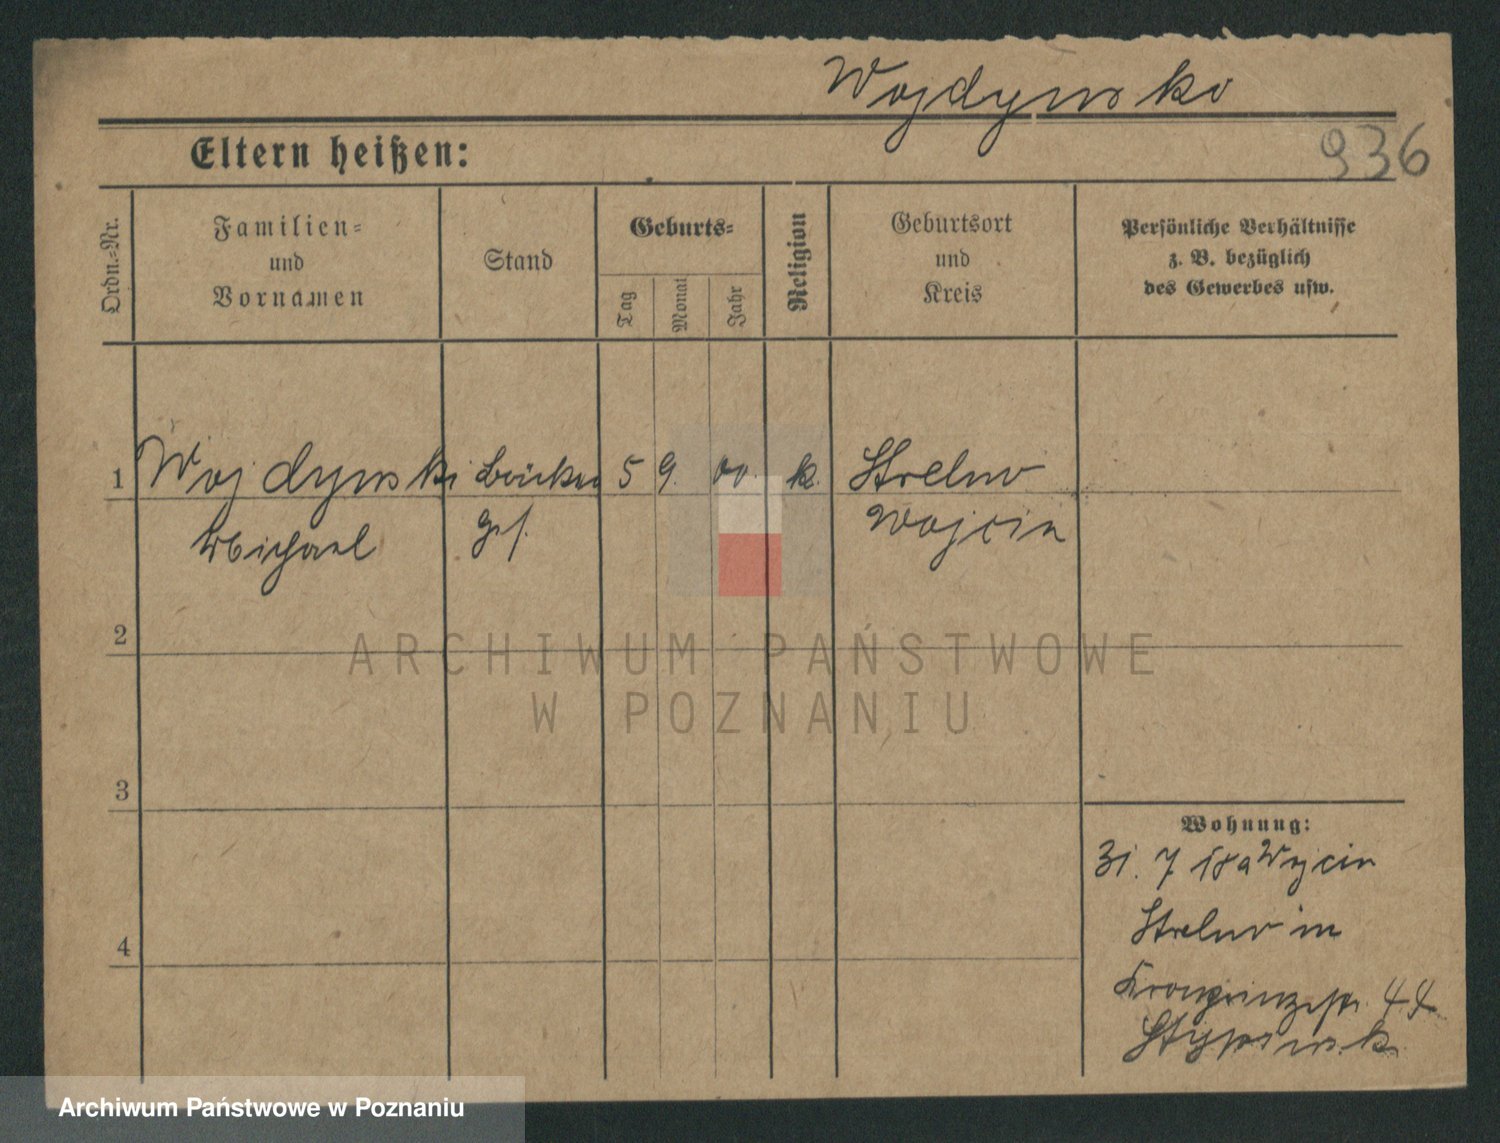 Wojdynski
936
Eltern heißen:
Ordn.-Nr.
Familien-
und
Vornamen
Stand
Geburts-
Tag
Monat
Jahr
Religion
Geburtsort
und
Kreis
Persönliche Verhältnisse
z. B. bezüglich
des Gewerbes usw.
1 Wojdynski Bäcker 5 9. 00. k. Strelno
Michael Ges. Wojcin
2
3
4
Wohnung:
31. 7 18 a Wojcin
Strelno in
Kronprinzstr. 44
ARCHIWUM PAŃSTWOWE
W POZNANIU
Archiwum Państwowe w Poznaniu